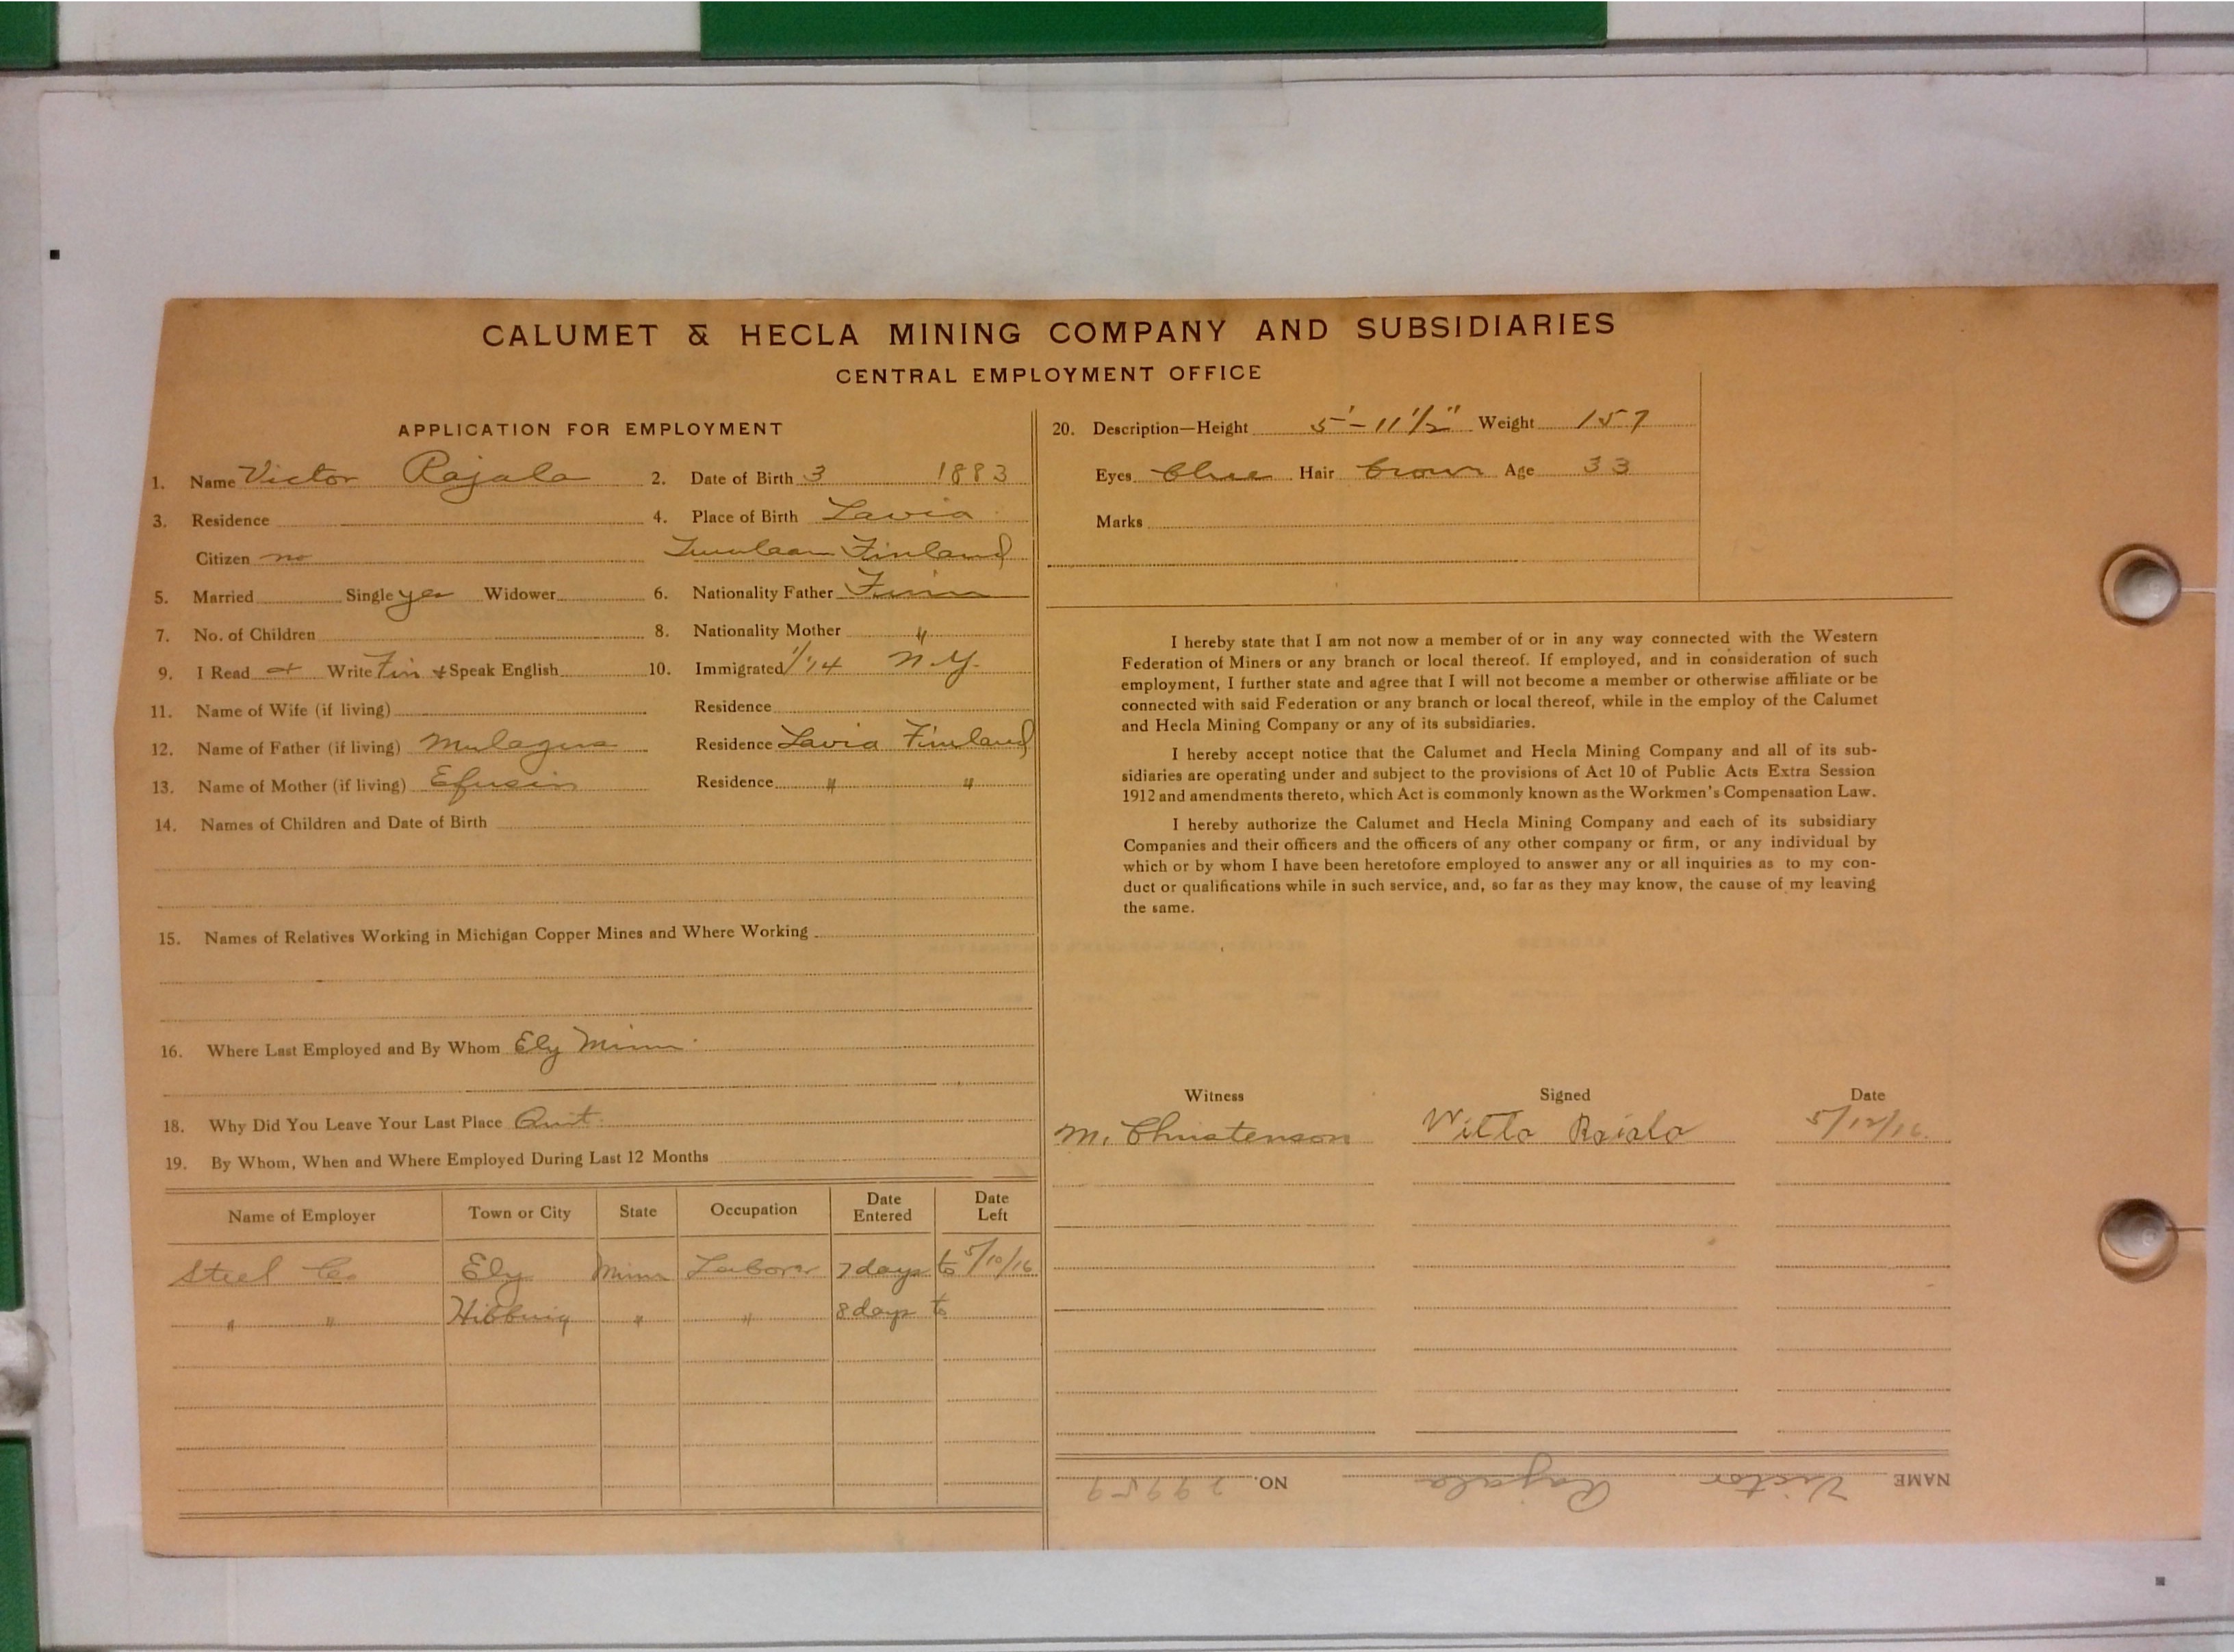 CALUMET & HECLA MINING COMPANY AND SUBSIDIARIES
CENTRAL EMPLOYMENT OFFICE
APPLICATION FOR EMPLOYMENT
1. Name Victor Rajala 2. Date of Birth 3 1883
3. Residence 4. Place of Birth Lavia
Citizen no Finland
5. Married Single yes Widower 6. Nationality Father Finn
7. No. of Children 8. Nationality Mother "
9. I Read + Write Fin + Speak English 10. Immigrated 1/'14 N.Y.
11. Name of Wife (if living) Residence
12. Name of Father (if living) Residence Lavia Finland
13. Name of Mother (if living) Residence " "
14. Names of Children and Date of Birth
15. Names of Relatives Working in Michigan Copper Mines and Where Working
16. Where Last Employed and By Whom Ely Minn
18. Why Did You Leave Your Last Place Quit.
19. By Whom, When and Where Employed During Last 12 Months
Name of Employer Town or City State Occupation Date Entered Date Left
Steel Co Ely Minn Laborer 7 days to 5/10/16
" " Hibbing " " 8 days to
20. Description—Height 5'-11 1/2" Weight 157
Eyes blue Hair brown Age 33
Marks
I hereby state that I am not now a member of or in any way connected with the Western
Federation of Miners or any branch or local thereof. If employed, and in consideration of such
employment, I further state and agree that I will not become a member or otherwise affiliate or be
connected with said Federation or any branch or local thereof, while in the employ of the Calumet
and Hecla Mining Company or any of its subsidiaries.
I hereby accept notice that the Calumet and Hecla Mining Company and all of its sub-
sidiaries are operating under and subject to the provisions of Act 10 of Public Acts Extra Session
1912 and amendments thereto, which Act is commonly known as the Workmen's Compensation Law.
I hereby authorize the Calumet and Hecla Mining Company and each of its subsidiary
Companies and their officers and the officers of any other company or firm, or any individual by
which or by whom I have been heretofore employed to answer any or all inquiries as to my con-
duct or qualifications while in such service, and, so far as they may know, the cause of my leaving
the same.
Witness Signed Date
M. Christenson Witto Raiala 5/12/16.
NAME Victor Rajala NO. 29959